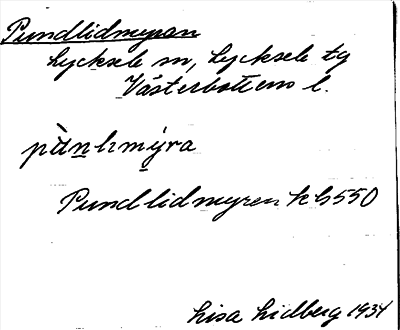 Pundlidmyran
Lycksele sn, Lycksele tg
Västerbottens l.
Pundlidmyren kb 550
Lisa Lidberg 1934